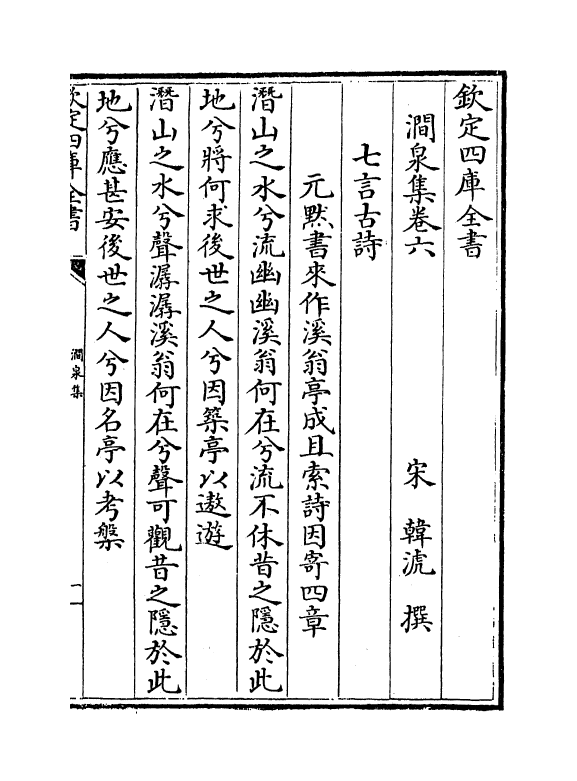 欽定四庫全書
澗泉集卷六
宋 韓淲 撰
七言古詩
元默書來作溪翁亭成且索詩因寄四章
潛山之水兮流幽幽溪翁何在兮流不休昔之隱於此
地兮將何求後世之人兮因築亭以遨遊
潛山之水兮聲潺潺溪翁何在兮聲可觀昔之隱於此
地兮應甚安後世之人兮因名亭以考槃
欽定四庫全書
澗泉集
一